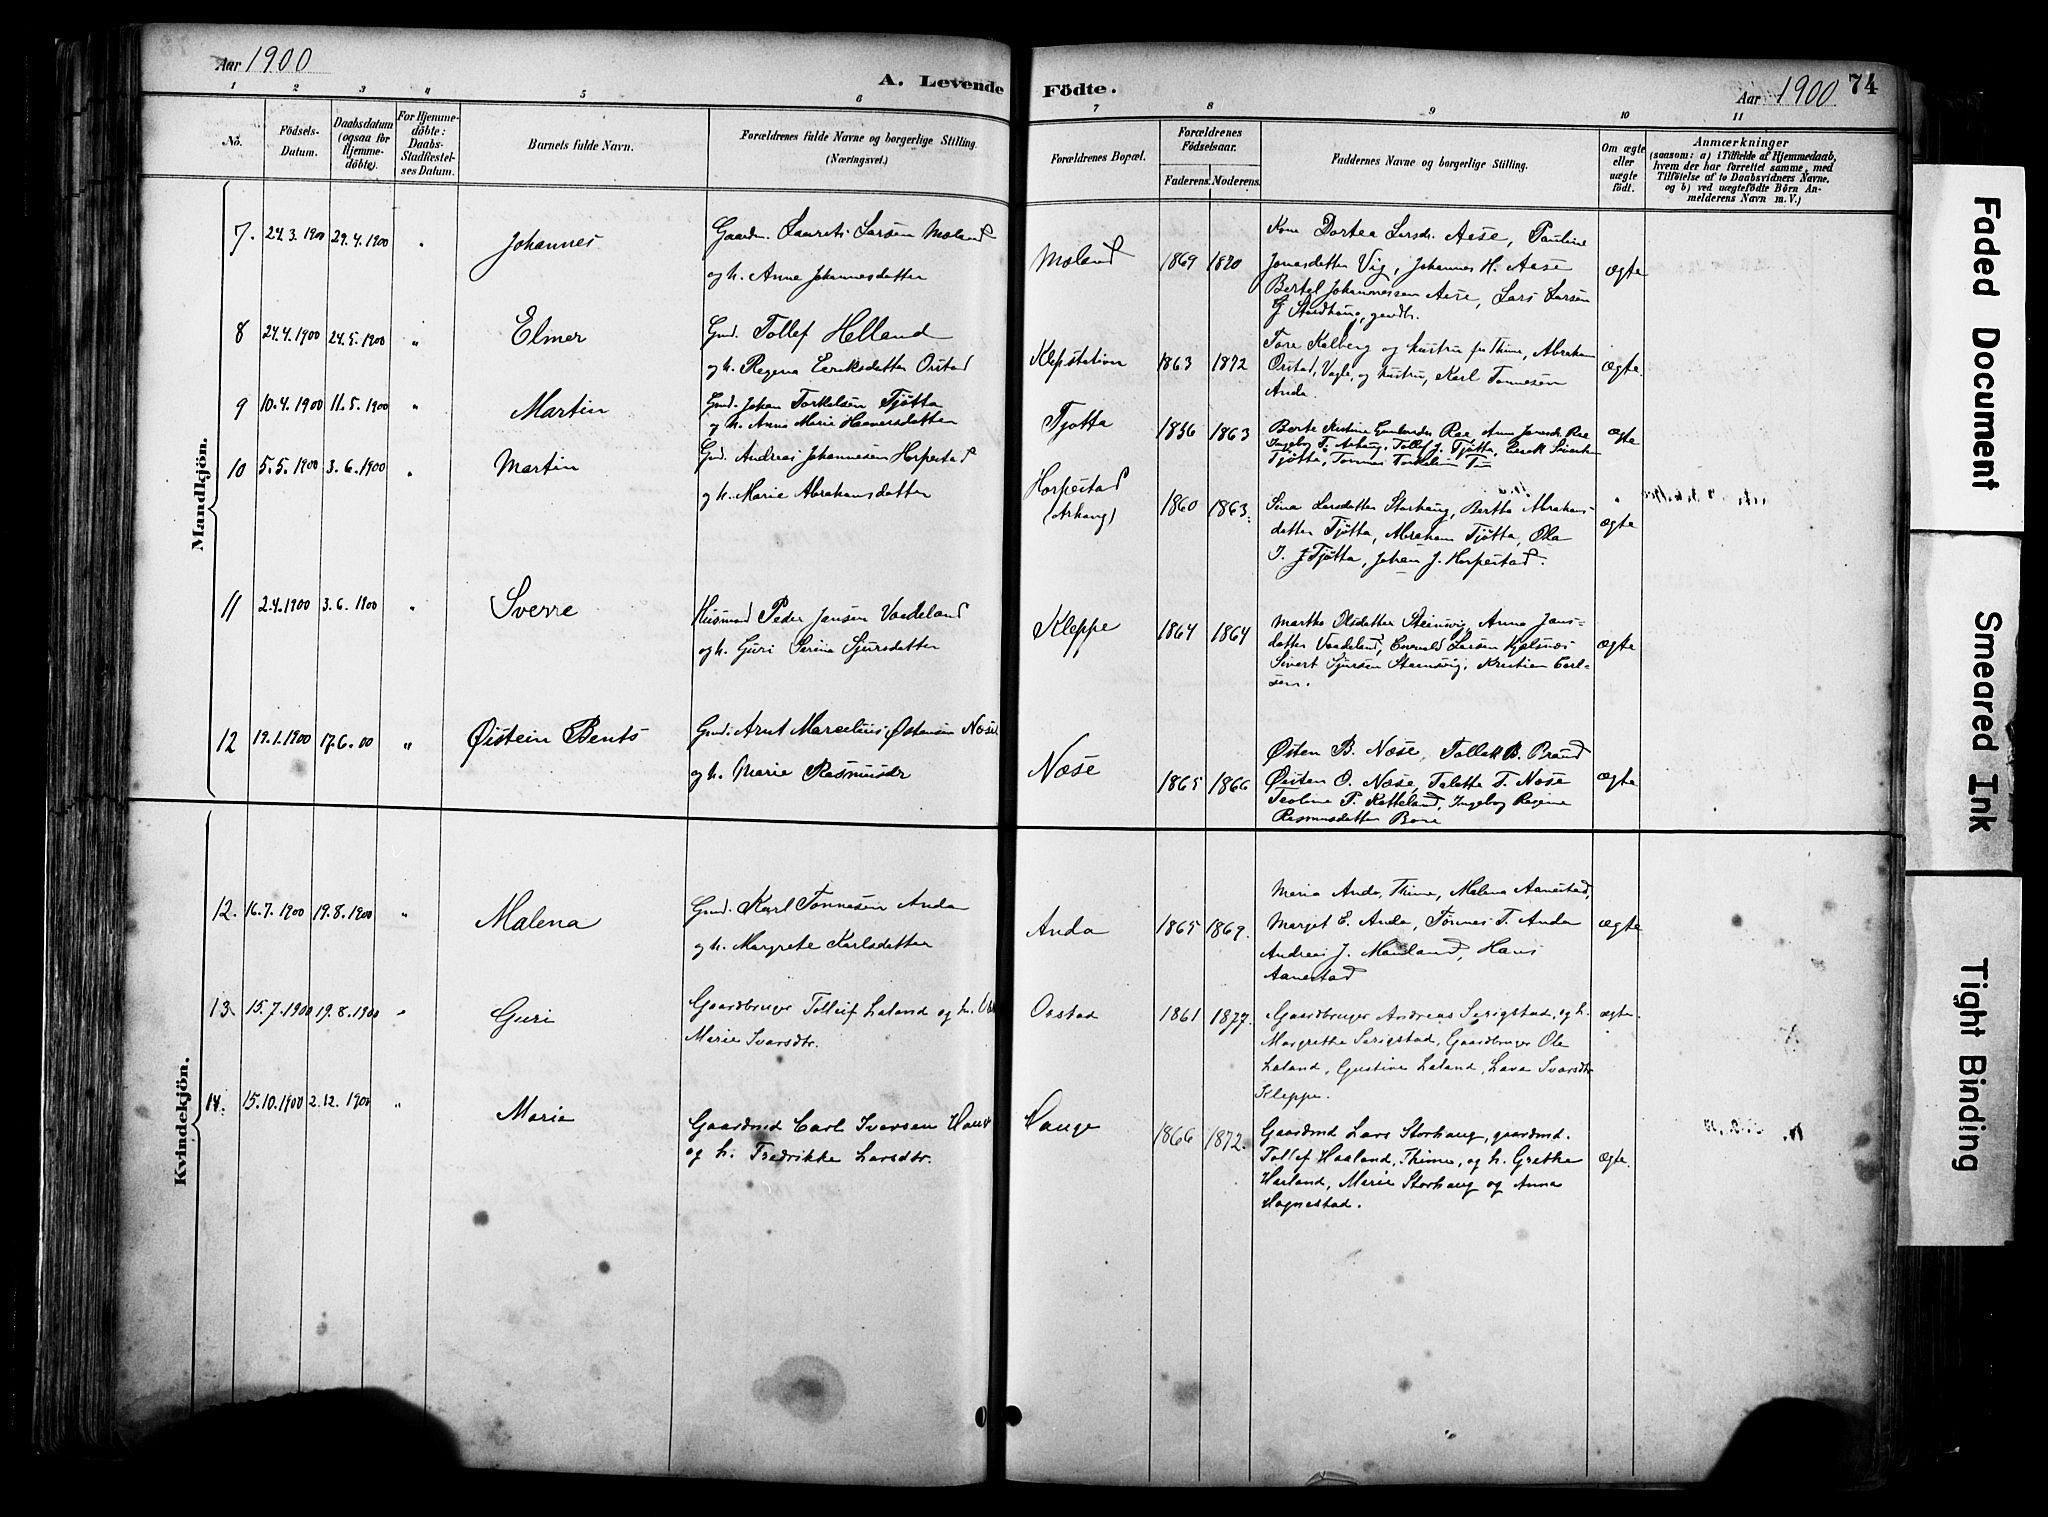 Aar 1900
A. Levende Födte.
Aar 1900
74
1 2 3 4 5 6 7 8 9 10 11
No.
Födsels-Datum.
Daabsdatum (ogsaa for Hjemmedöbte).
For Hjemmedöbte: Daabs-Stadfæstelses Datum.
Barnets fulde Navn.
Forældrenes fulde Navne og borgerlige Stilling. (Næringsvei.)
Forældrenes Bopæl.
Forældrenes Födselsaar.
Faderens. Moderens.
Faddernes Navne og borgerlige Stilling.
Om ægte eller uægte födt.
Anmærkninger
(saasom: a) i Tilfælde af Hjemmedaab,
hvem der har forrettet samme, med
Tilföielse af to Daabsvidners Navne,
og b) ved uægtefödte Börn Anmelderens Navn m. V.)
Mandkjön.
7. 24.3.1900 29.4.1900 " Johannes
Gaardm. Laurits Larsen Moland
og h. Anna Johannesdatter
Moland 1869 1870
Kone Dortea Larsdr. Aase, Pauline
Jonasdatter Vig, Johannes H. Aase
Bertel Johannessen Aase, Lars Larsen
Storhaug, gmdbr.
ægte
8 24.4.1900 24.5.1900 " Elmer
Gmd. Tollef Helland
og h. Regina Eriksdatter Orstad
Klepstation 1863 1872
Tore Kalberg og hustru fra Thime, Abraham
Orstad, Vagle, og hustru, Karl Tonnesen
Anda.
ægte
9 10.4.1900 11.5.1900 " Martin
Gmd. Johan Torkelsen Tjøtta
og h. Anna Marie Haaversdatter
Tjøtta 1856 1863
Berte Kristine Gunlauds Ree, Anna Jonasdr. Ree
Ingebor T. Arhaug, Tollef J. Tjøtta,
Tjøtta, Tonnes Torkelsen
ægte
10 5.5.1900 3.6.1900 " Martin
Gmd. Andreas Johannesen Horpestad
og h. Marie Abrahamsdatter
Horpestad
(Arhaug) 1860 1863.
Sina Larsdatter Storhaug, Bertha Abrahamsdatter
Tjøtta, Abraham Tjøtta, Ola
I. J. Tjøtta, Johan J. Horpestad.
ægte
11 2.4.1900 3.6.1900 " Sverre
Husmand Peder Jansen Vaadeland
og h. Guri Serina Sjursdatter
Kleppe 1864 1864
Martha Olsdatter Steinsvig, Anna Jansdatter
Vaadeland, Enevald Larsen Kjelsnæs
Sivert Sjursen Steinsvig, Kristian Carlsen.
ægte
12 19.1.1900 17.6.00 " Øistein Bents
Gmd. Arnt Marcelius Østensen Næse
og h. Marie Rasmusdr
Næse 1865 1866
Østen B. Næse, Tollak B. Braud
Østen O. Næse, Talette T. Næse
Teoline P. Katteland, Ingebor Regine
Rasmusdatter Bore
ægte
Kvindekjön.
12. 16.7.1900 19.8.1900 " Malena
Gmd. Karl Tonnesen Anda
og h. Margrete Karlsdatter
Anda 1865 1869.
Maria Anda, Thime, Malena Aanestad,
Marget E. Anda, Tønnes T. Anda
Andreas J. Mauland, Hans
Aanestad
ægte
13. 15.7.1900 19.8.1900 " Guri
Gaardbruger Tolleif Laland og h.
Marie Ivarsdtr.
Orstad 1861 1877.
Gaardbruger Andreas Serigstad, og h.
Margrethe Serigstad, Gaardbruger Ole
Laland, Gustine Laland, Lava Ivarsdtr
Kleppe.
ægte
14. 15.10.1900 2.12.1900 " Marie
Gaardmd Carl Iversen Hauge
og h. Fredrikke Larsdtr.
Hauge 1866 1872.
Gaardmd Lars Storhaug, gaardmd.
Tollef Haaland, Thime, og h. Grethe
Haaland, Marie Storhaug og Anna
Hognestad.
ægte.
Faded Document
Smeared Ink
Tight Binding